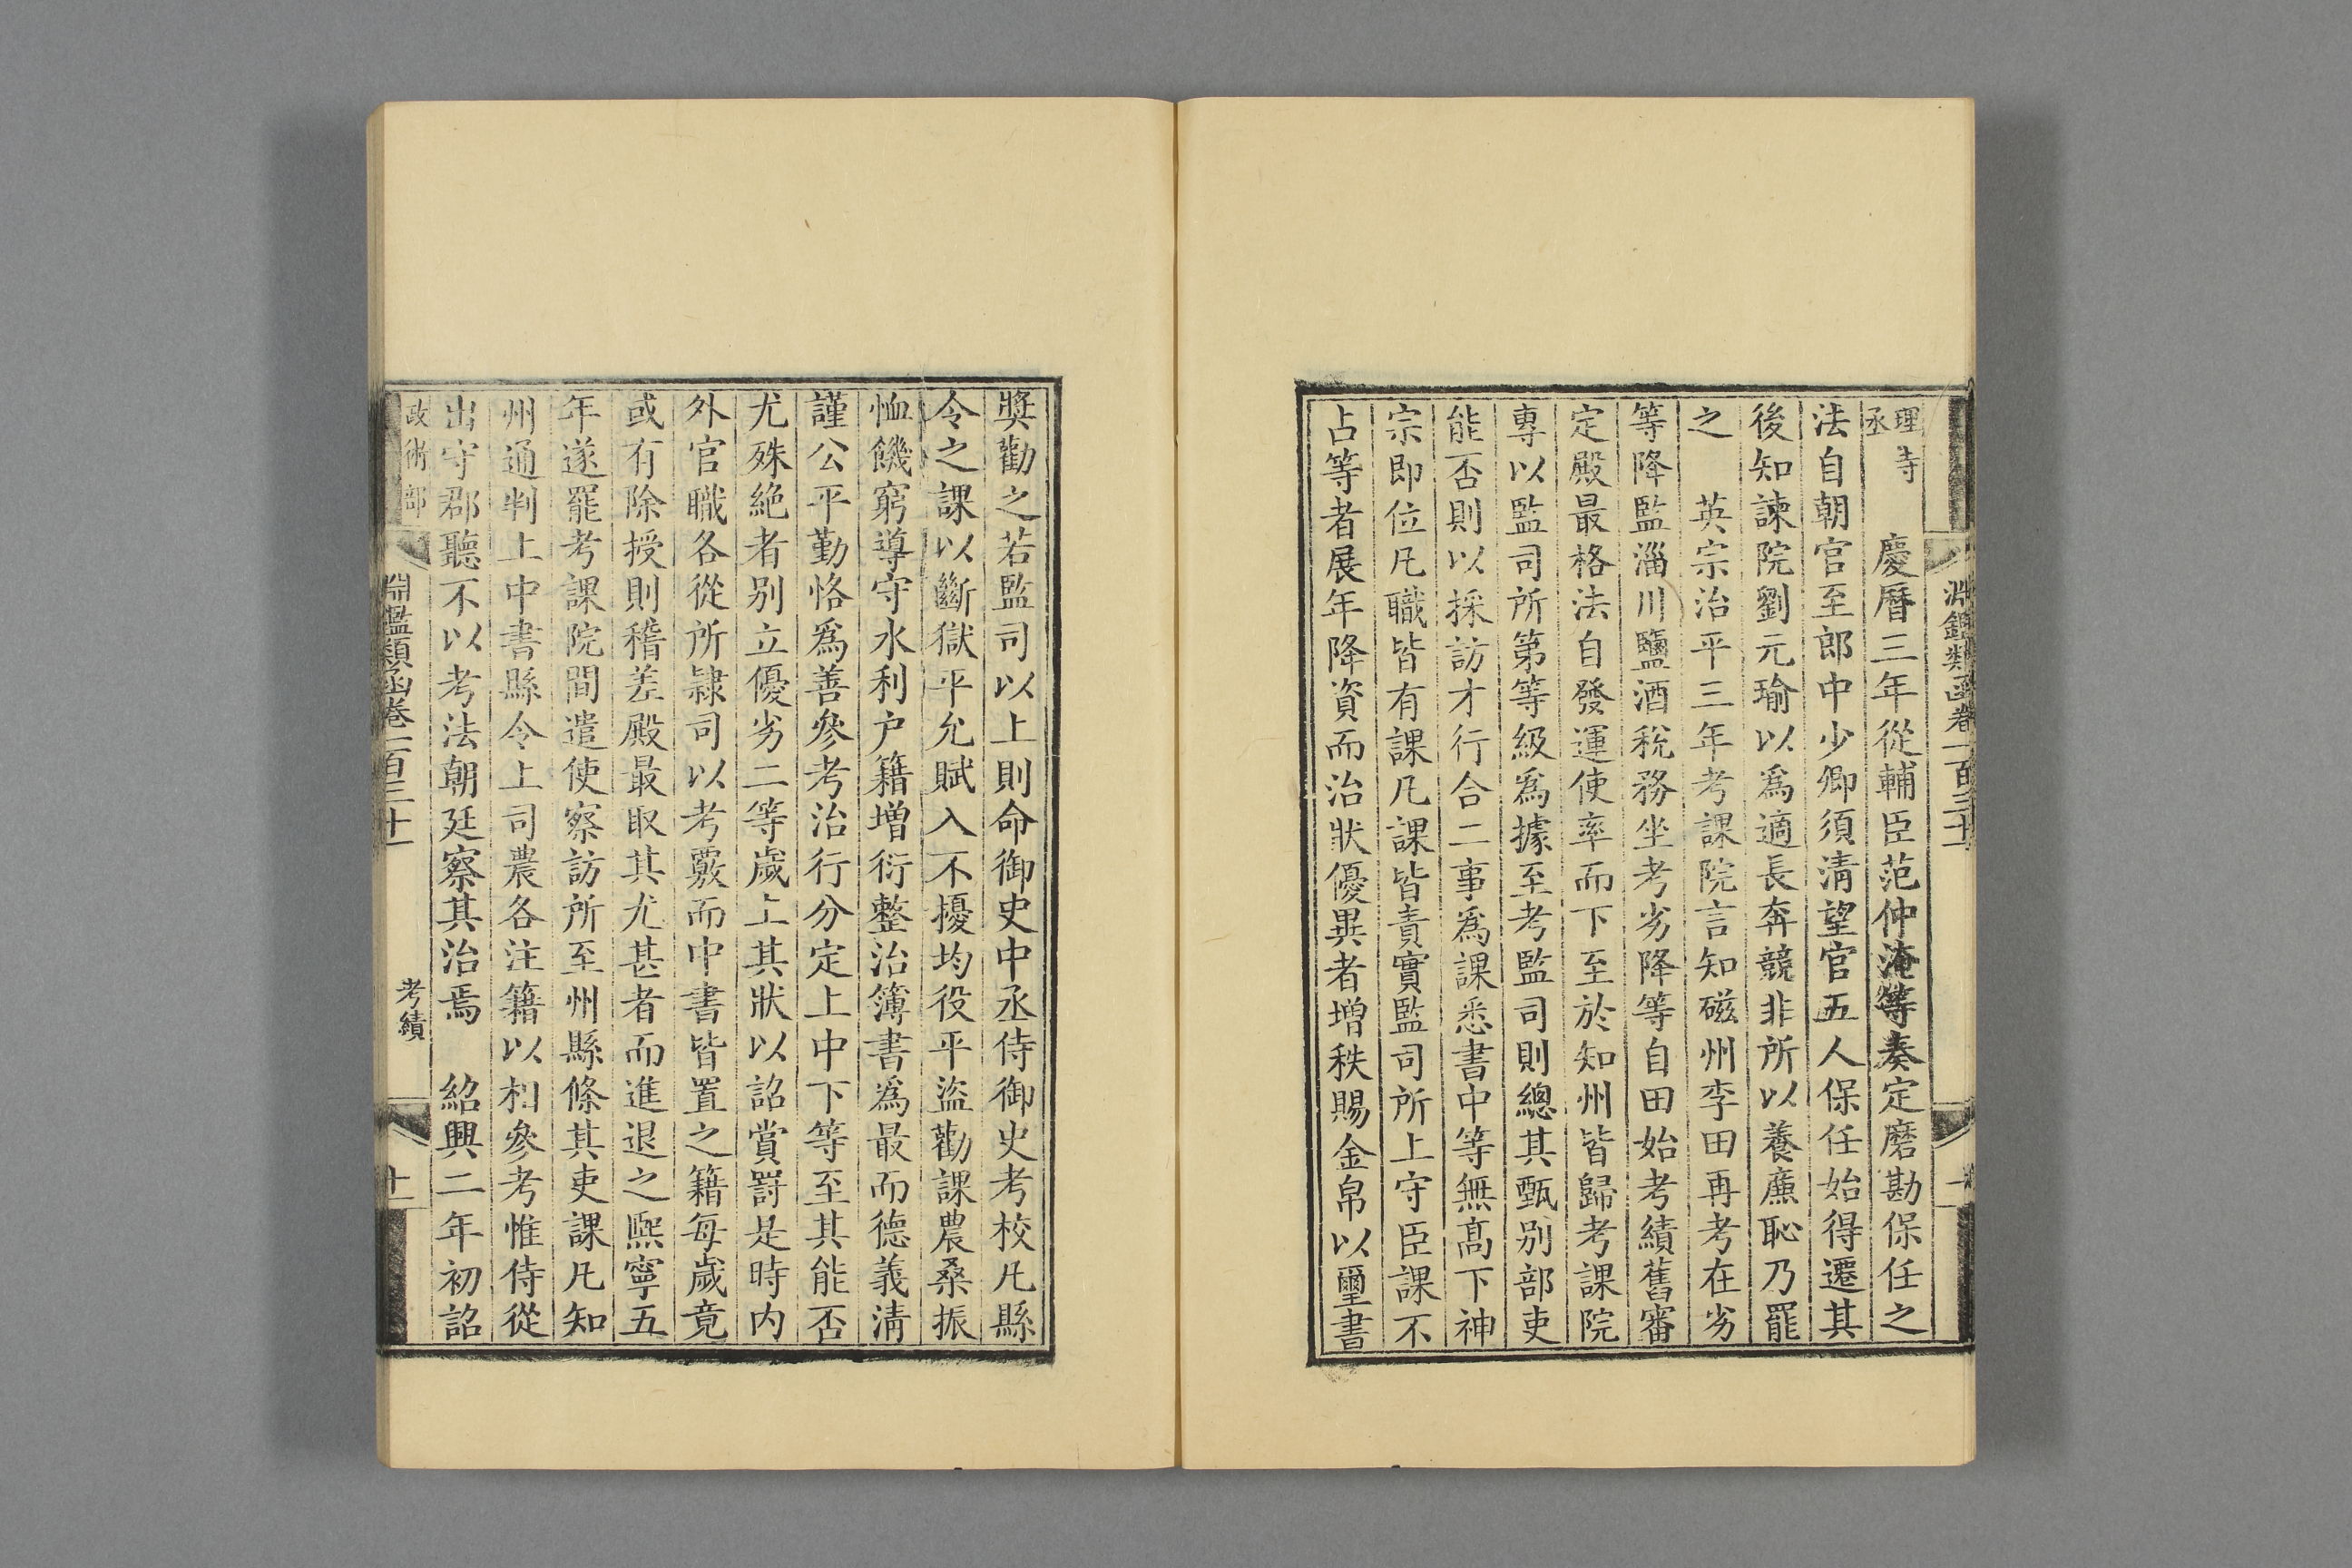 淵鑑類函卷一百三十一
理寺丞　慶曆三年從輔臣范仲淹等奏定磨勘保任之
法自朝官至郎中少卿須清望官五人保任始得遷其
後知諫院劉元瑜以爲適長奔競非所以養廉恥乃罷
之　英宗治平三年考課院言知磁州李田再考在劣
等降監淄川鹽酒稅務坐考劣降等自田始考績舊審
定殿最格法自發運使率而下至於知州皆歸考課院
專以監司所第等級爲據至考監司則總其甄别部吏
能否則以採訪才行合二事爲課悉書中等無高下神
宗即位凡職皆有課凡課皆責實監司所上守臣課不
占等者展年降資而治狀優異者增秩賜金帛以璽書
奬勸之若監司以上則命御史中丞侍御史考校凡縣
令之課以斷獄平允賦入不擾均役平盜勸課農桑振
恤饑窮導守水利户籍增衍整治簿書爲最而德義清
謹公平勤恪爲善參考治行分定上中下等至其能否
尤殊絶者别立優劣二等歲上其狀以詔賞罸是時内
外官職各從所隸司以考覈而中書皆置之籍每歲竟
或有除授則稽差殿最取其尤甚者而進退之熙寧五
年遂罷考課院間遣使察訪所至州縣條其吏課凡知
州通判上中書縣令上司農各注籍以相參考惟侍從
出守郡聽不以考法朝廷察其治焉　紹興二年初詔
政術部　淵鑑類函卷一百三十一　考績　十一